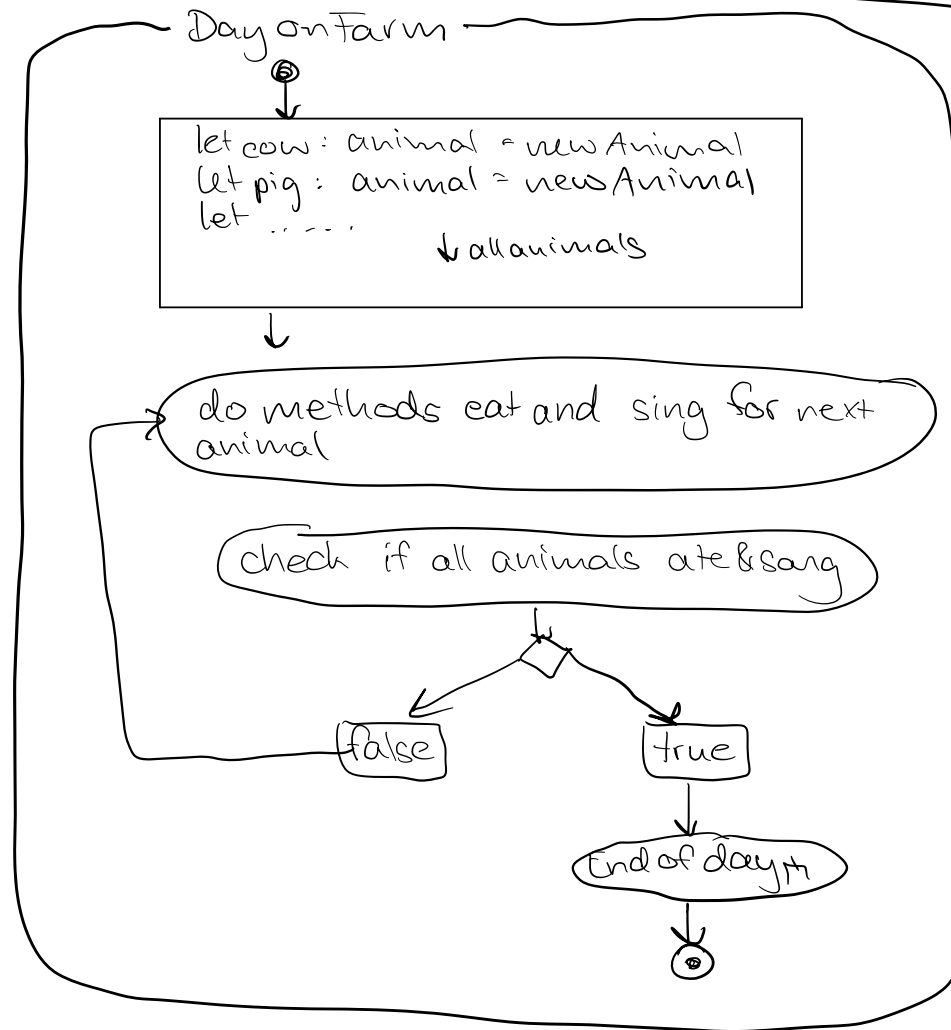 Day on Farm
let cow : animal = new Animal
let pig : animal = new Animal
let ......
↓ all animals
do methods eat and sing for next
animal
check if all animals ate & sang
false
true
End of day